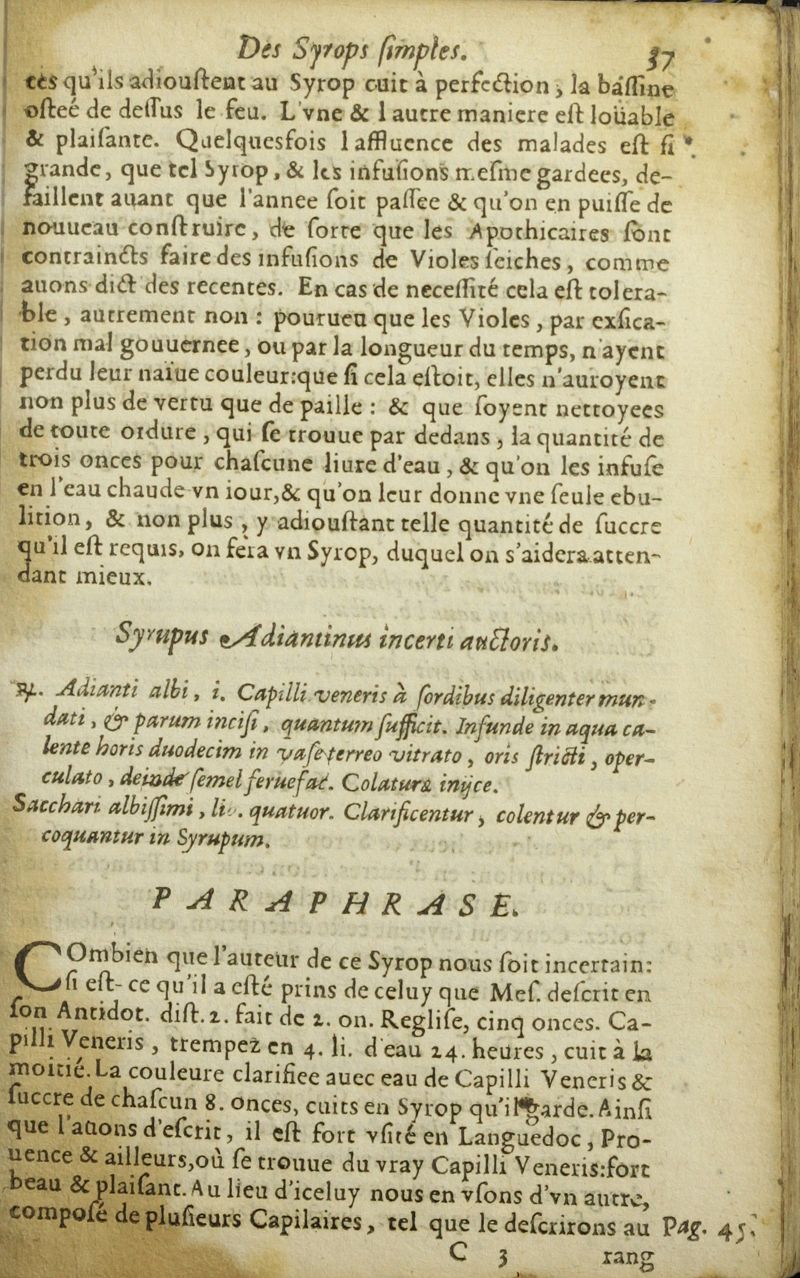 Des Syrops ſimples. 37
tes qu'ils adiouſtent au Syrop cuit à perfection, la baſſine
oſteé de deſſus le feu. L'vne & l autre maniere eſt loüable
& plaiſante. Quelquesfois l affluence des malades eſt ſi
grande, que tel Syrop, & les infuſions meſme gardees, de-
faillent auant que l'annee ſoit paſſee & qu'on en puiſſe de
nouueau conſtruire, de ſorte que les Apothicaires ſont
contraincts faire des infuſions de Violes ſeiches, comme
auons dict des recentes. En cas de neceſſité cela eſt tolera-
ble, autrement non : pourueu que les Violes, par exſica-
tion mal gouuernee, ou par la longueur du temps, n'ayent
perdu leur naïue couleur:que ſi cela eſtoit, elles n'auroyent
non plus de vertu que de paille : & que ſoyent nettoyees
de toute ordure, qui ſe trouue par dedans, la quantité de
trois onces pour chaſcune liure d'eau, & qu'on les infuſe
en l'eau chaude vn iour,& qu'on leur donne vne ſeule ebu-
lition, & non plus, y adiouſtant telle quantité de ſuccre
qu'il eſt requis, on fera vn Syrop, duquel on s'aidera atten-
dant mieux.
Syrupus Adiantinus incerti auctoris.
℞. Adianti albi, i. Capilli veneris à ſordibus diligenter mun-
dati, & parum inciſi, quantum ſufficit. Infunde in aqua ca-
lente horis duodecim in vaſe terreo vitrato, oris ſtricti, oper-
culato, deinde ſemel feruefac. Colaturæ inijce.
Sacchari albiſſimi, li. quatuor. Clarificentur, colentur & per-
coquantur in Syrupum.
PARAPHRASE.
COmbien que l'auteur de ce Syrop nous ſoit incertain:
ſi eſt-ce qu'il a eſté prins de celuy que Meſ. deſcrit en
ſon Antidot. diſt. 2. fait de 2. on. Regliſe, cinq onces. Ca-
pilli Veneris, trempez en 4. li. d'eau 24. heures, cuit à la
moitié. La couleure clarifiee auec eau de Capilli Veneris &
ſuccre de chaſcun 8. onces, cuits en Syrop qu'il garde. Ainſi
que l'auons d'eſcrit, il eſt fort vſité en Languedoc, Pro-
uence & ailleurs,où ſe trouue du vray Capilli Veneris:fort
beau & plaiſant. Au lieu d'iceluy nous en vſons d'vn autre,
compoſé de pluſieurs Capilaires, tel que le deſcrirons au Pag. 45.
C 3 rang